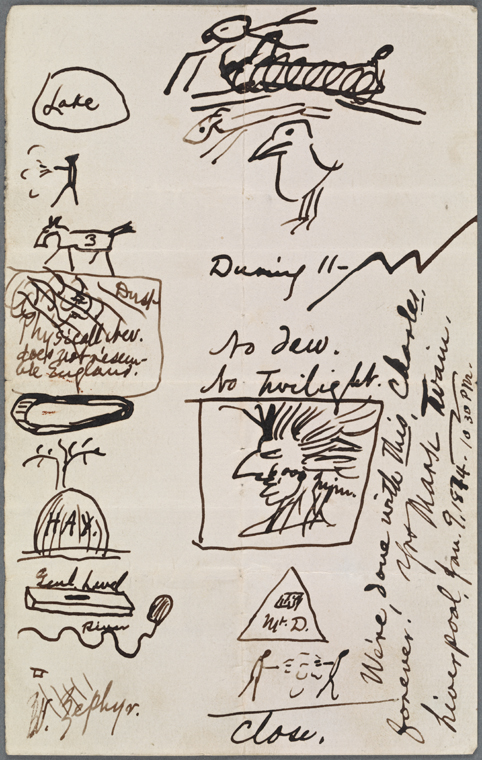 Lake
3
Dust
Physical Nev.
does not resem-
ble England.
HAY.
Genl. Level
River
W. Zephyr.
During 11-
No dew.
No Twilight.
Mt. D.
Close.
We're done with this, Charles,
forever! Yrs Mark Twain.
Liverpool, Jan. 9, 1874. 10 30 P.M.